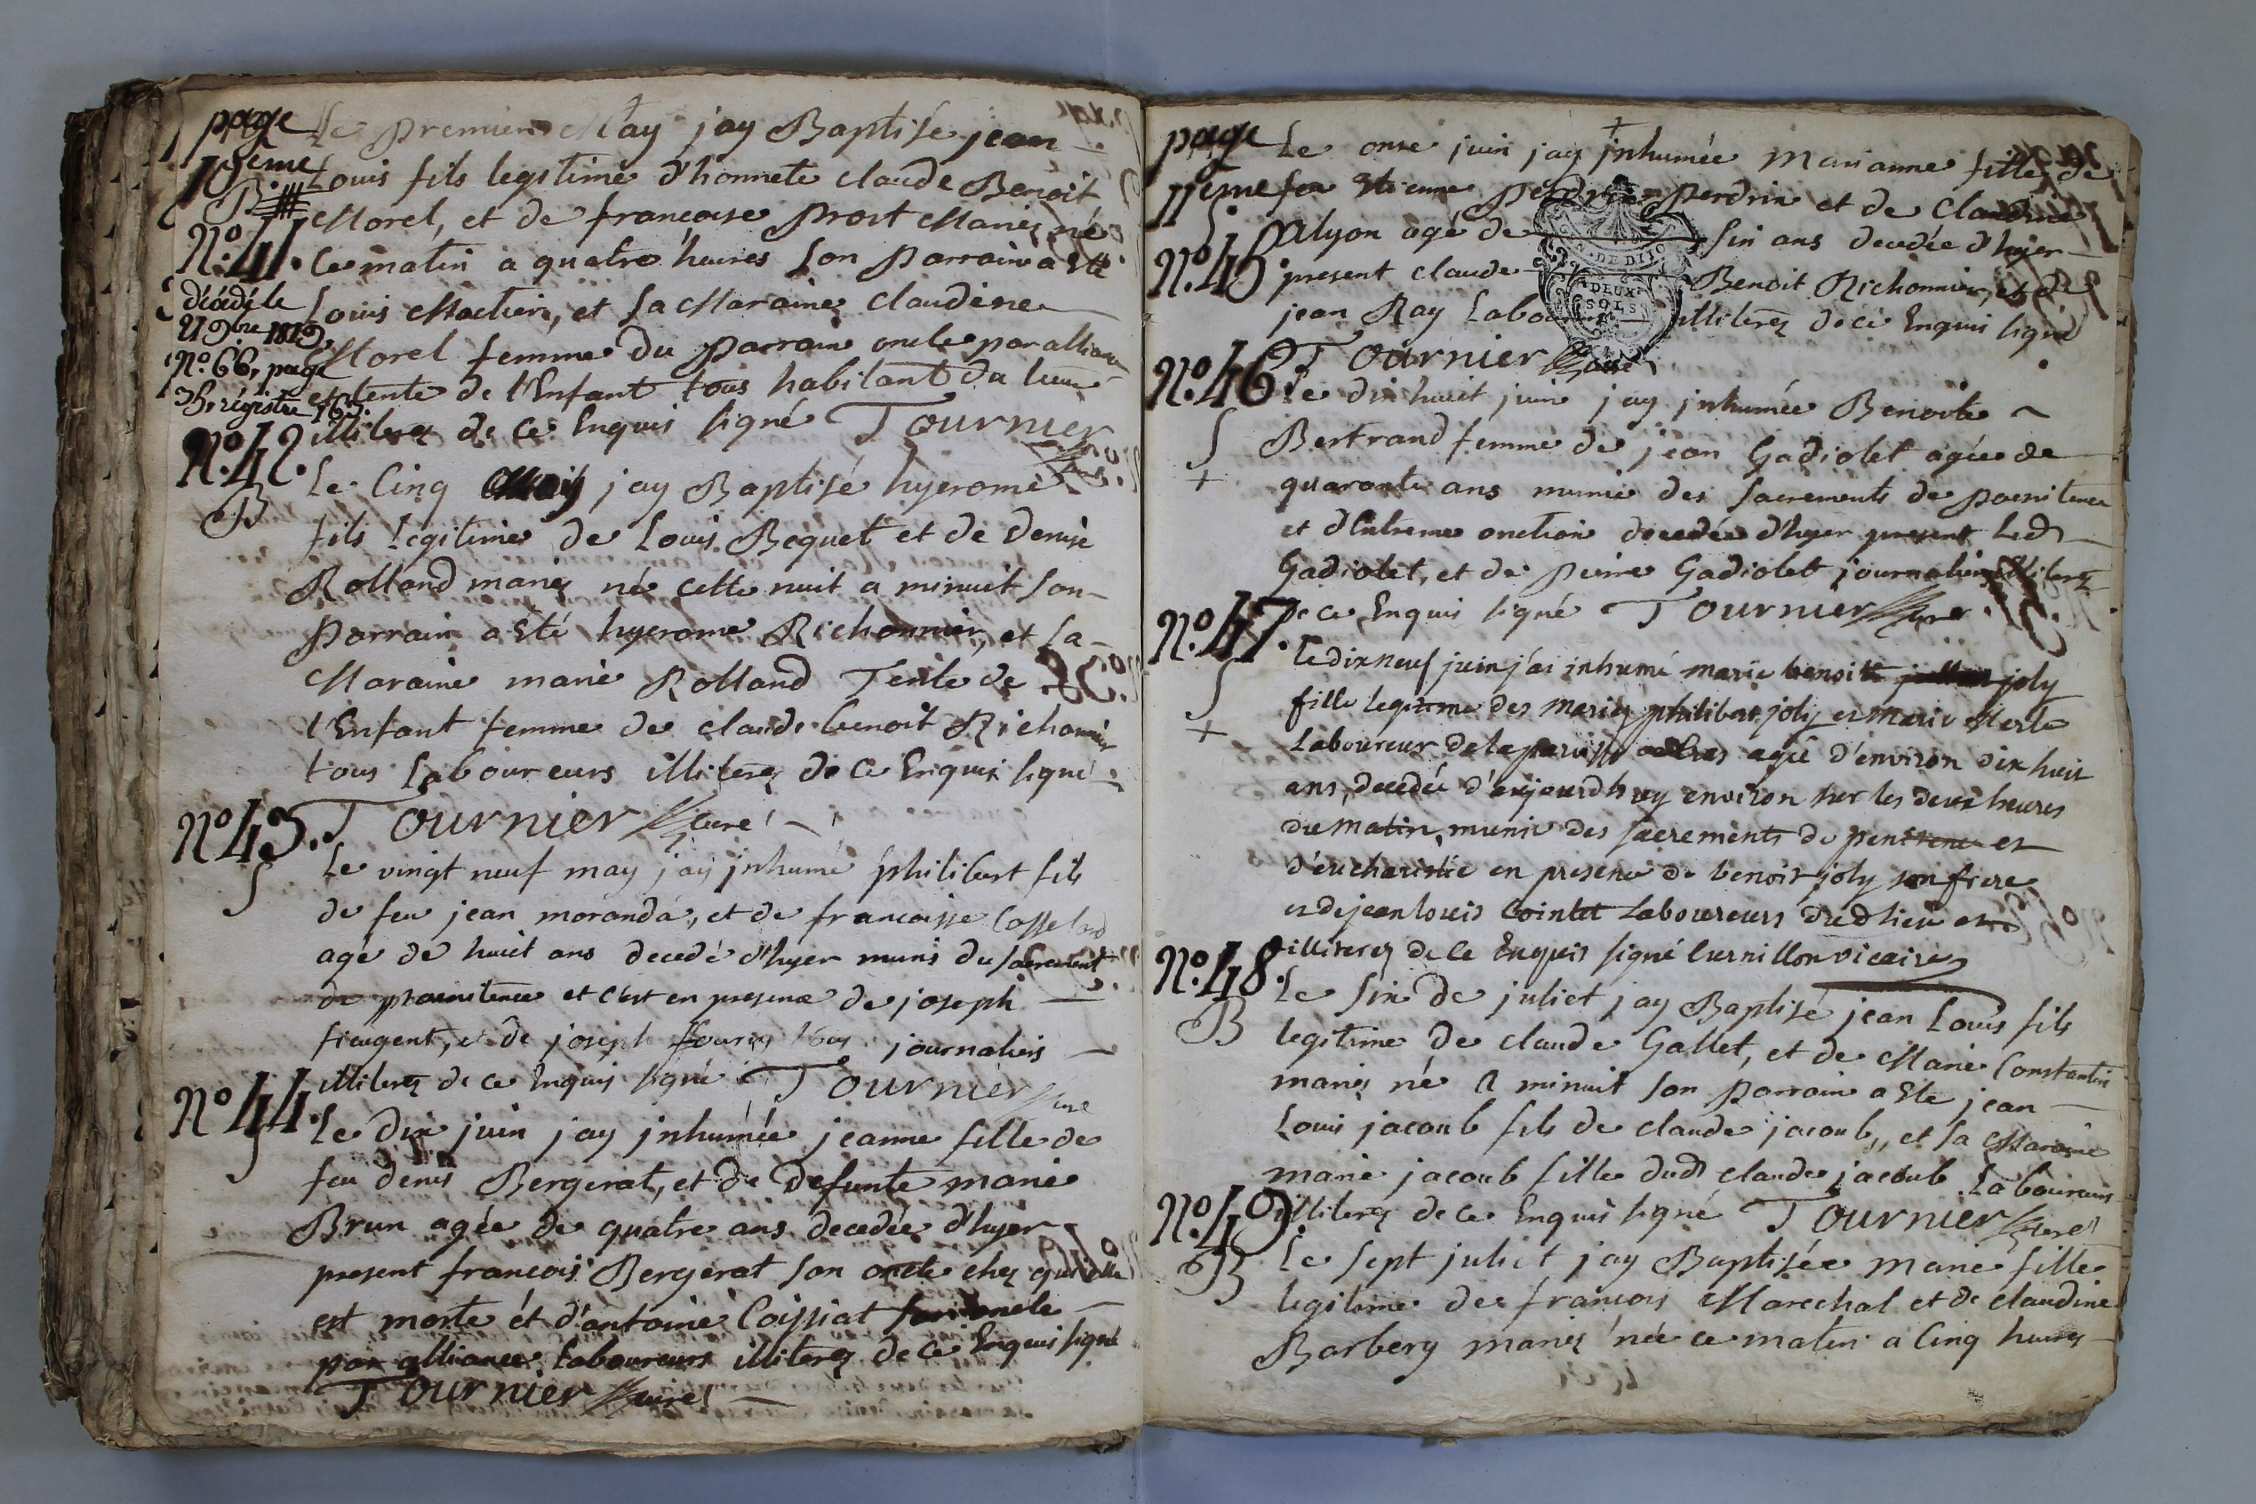 page
10eme
B
Le premier May jay Baptisé jean
Louis fils legitime d'honnete claude Benoit
Morel, et de francoise prost Mariez né
No. 41.
Ce matin a quatre heures son Parrain a Eté
décédé le
21 9bre 1819.
No. 66, page
registre
Louis Mathieu, et sa Maraine Claudine
Morel femme du parrain oncle par alliance
et tente de l'Enfant tous habitant du lieu
illiterez de ce Enquis signé Tournier
curé
No. 42.
B
Le Cinq May jay Baptisé hyerome
fils Legitime de Louis Bequet et de denise
Rolland mariez né cette nuit a minuit son
Parrain a Eté hyerome Richonnier, et sa
Maraine marie Rolland Tente de
l'Enfant femme de claude benoit Richonnier
tous Laboureurs illiterez de ce Enquis signé
Tournier curé
No 43.
S
Le vingt neuf may jay jnhumé philibert fils
de feu jean moranda, et de francoise
agé de huit ans decedé d'hyer munis du sacrement
de poenitence et c'est en presence de joseph
fieugent, et de joseph tous journaliers
illiterez de ce Enquis signé Tournier curé
No 44.
S
Le Dix juin jay jnhumée jeanne fille de
feu denis Bergerat, et de defunte marie
Brun agée de quatre ans decedée d'hyer
present francois Bergerat son oncle chez qui elle
est morte et d'antoine Coissiat son oncle
par alliance Laboureurs illiterez de ce Enquis signé
Tournier curé
page
11eme
S
No. 45.
Le onze juin jay jnhumée Marianne fille de
feu Etienne perdrix et de Claudine
alyon agé de six ans decedée d'hyer
present claude Benoit Richonnier, et de
jean Ray Laboureurs illiterez de ce Enquis signé
GEN. DE DIJON
DEUX
SOLS
Tournier curé
No. 46.
S
+
Le dix huit juin jay jnhumée Benoite
Bertrand femme de jean Gadiolet agée de
quarante ans munie des sacrements de poenitence
et d'Extreme onction decedée d'hyer present Led
Gadiolet, et de pierre Gadiolet journaliers illiterez
de ce Enquis signé Tournier curé
No. 47.
S
+
Le dix neuf juin j'ai inhumé marie benoite joly
fille legitime des mariez philibert joly et marie Merle
Laboureur de la paroisse agée d'environ dix huit
ans, decedée d'aujourdhuy environ sur les deux heures
du matin, munie des sacrements de penitence et
d'eucharistie en presence de benoist joly son frere
et de jean louis Cointet Laboureurs dud lieu
illiterez de ce Enquis signé vicaire
No. 48.
B
Le six de juliet jay Baptisé jean Louis fils
legitime de claude Gallet, et de Marie Constantin
mariez né a minuit son parrain a Ete jean
Louis jacoub fils de claude jacoub, et sa Maraine
marie jacoub fille dud claude jacoub Laboureurs
illiterez de ce Enquis signé Tournier curé
No. 49.
B
Le sept juliet jay Baptisée marie fille
legitime de francois Marechal et de claudine
Barbery mariez née ce matin a Cinq heures